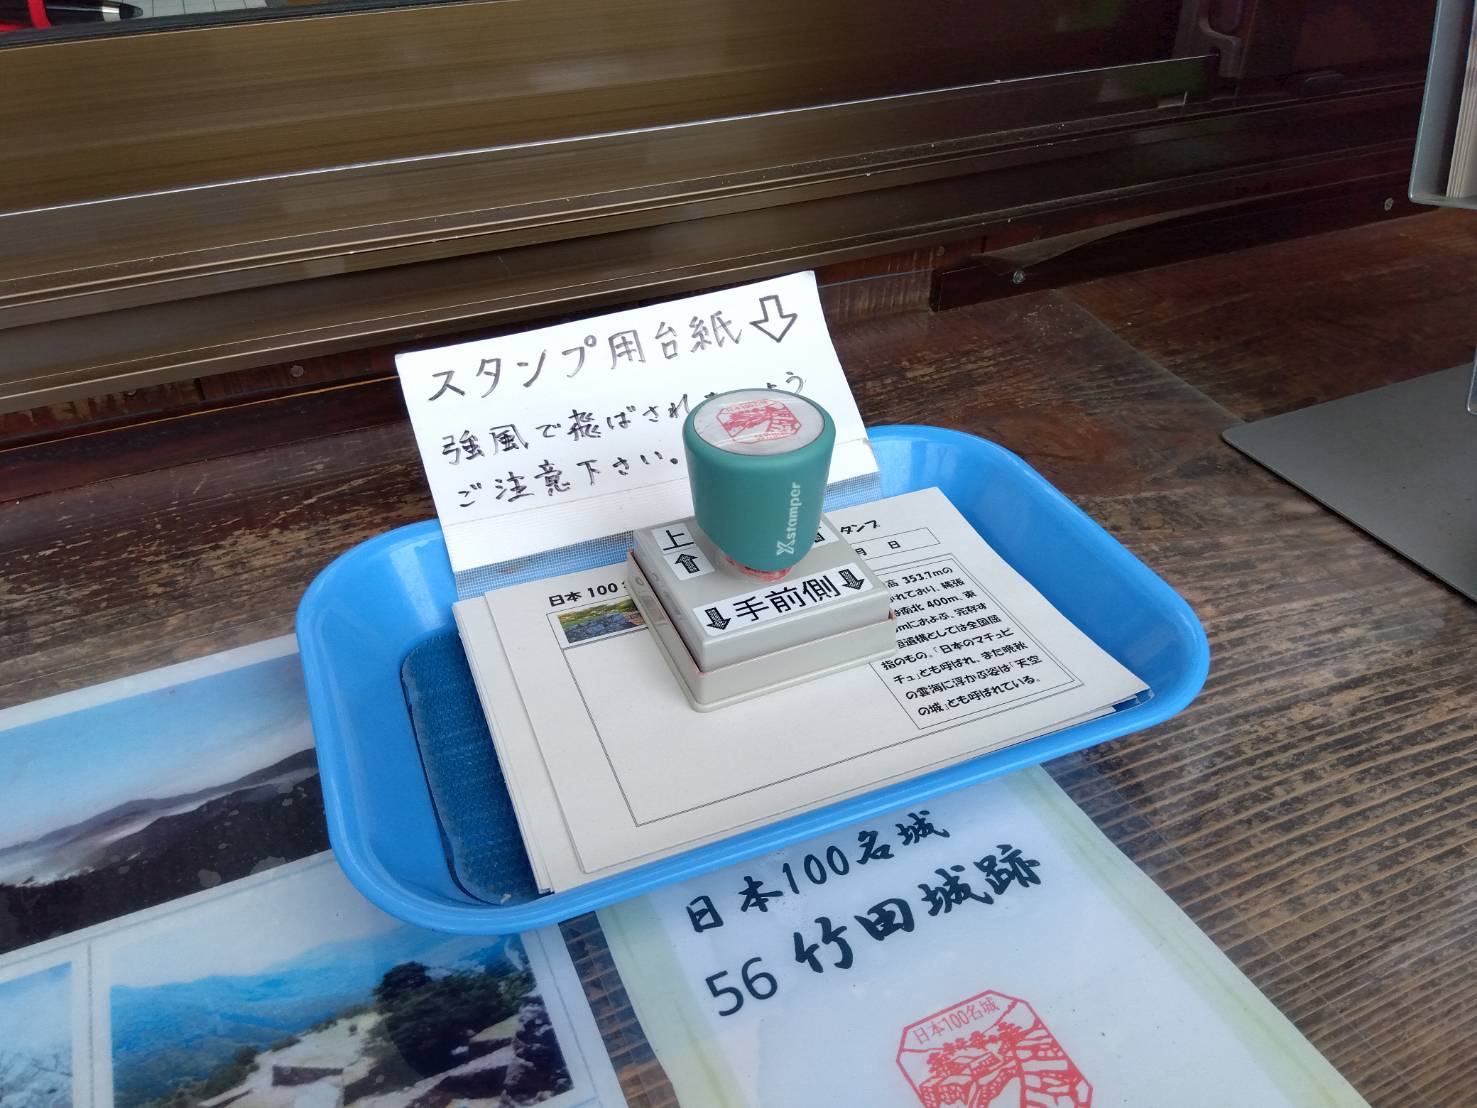 スタンプ用台紙
強風で飛ばされ よう
ご注意下さい。
日本100名城
Xstamper
上
手前側
日本100
タンプ
月 日
高 353.7mの
れており、縄張
南北 400m、東
mにおよぶ、完存す
垣遺構としては全国屈
指のもの。「日本のマチュピ
チュ」とも呼ばれ、また晩秋
の雲海に浮かぶ姿は「天空
の城」とも呼ばれている。
日本100名城
56 竹田城跡
日本100名城